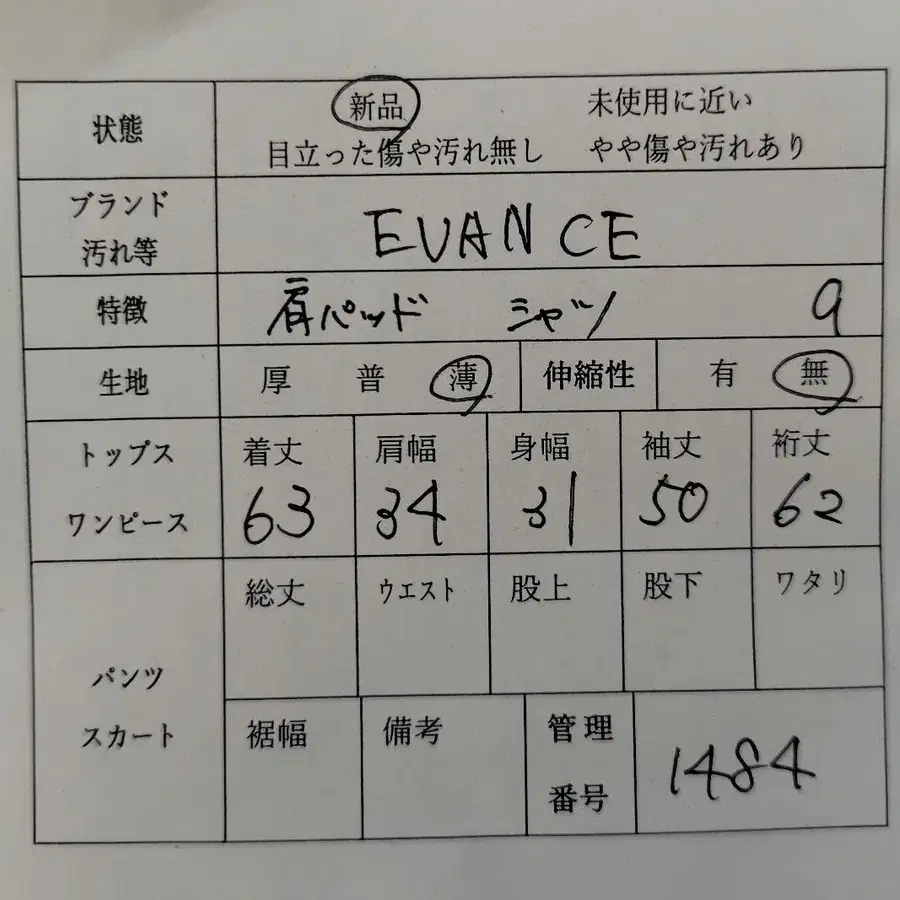 状態
新品 未使用に近い
目立った傷や汚れ無し やや傷や汚れあり
ブランド
汚れ等
EVANCE
特徴 肩パッド シャツ 9
生地 厚 普 薄 伸縮性 有 無
トップス
ワンピース
着丈 肩幅 身幅 袖丈 裄丈
63 34 31 50 62
パンツ
スカート
総丈 ウエスト 股上 股下 ワタリ
裾幅 備考 管理
番号
1484